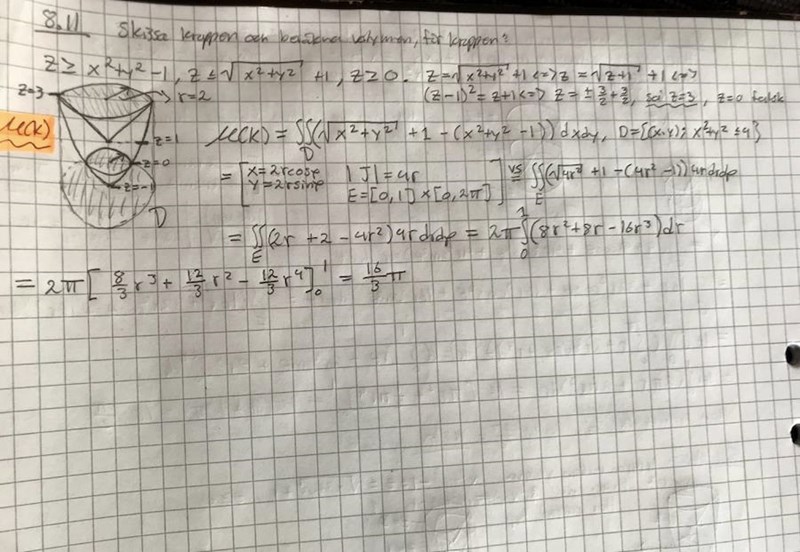 8.11 Skissa kroppen och beräkna volymen, för kroppen:
z ≥ x²+y²-1, z ≤ √(x²+y²) +1, z ≥ 0. z=√(x²+y²) +1 <=> z = √(z+1) +1 <=>
z=3 r=2 (z-1)² = z+1 <=> z = ± 3/2 + 3/2, så z=3, z=0 falsk
μ(K) z=1 μ(K) = ∬_D (√(x²+y²) + 1 - (x²+y² -1)) dxdy, D={(x,y): x²+y² ≤ 4}
z=0 = [ x=2rcosφ |J| = 4r
z=-1 y=2rsinφ E=[0,1]×[0,2π] ] vs = ∬_E (√4r² + 1 - (4r² -1)) 4r drdφ
D = ∬_E (2r + 2 - 4r²) 4r drdφ = 2π ∫_0^1 (8r² + 8r - 16r³) dr
= 2π [ 8/3 r³ + 12/3 r² - 12/3 r⁴ ]_0^1 = 16/3 π